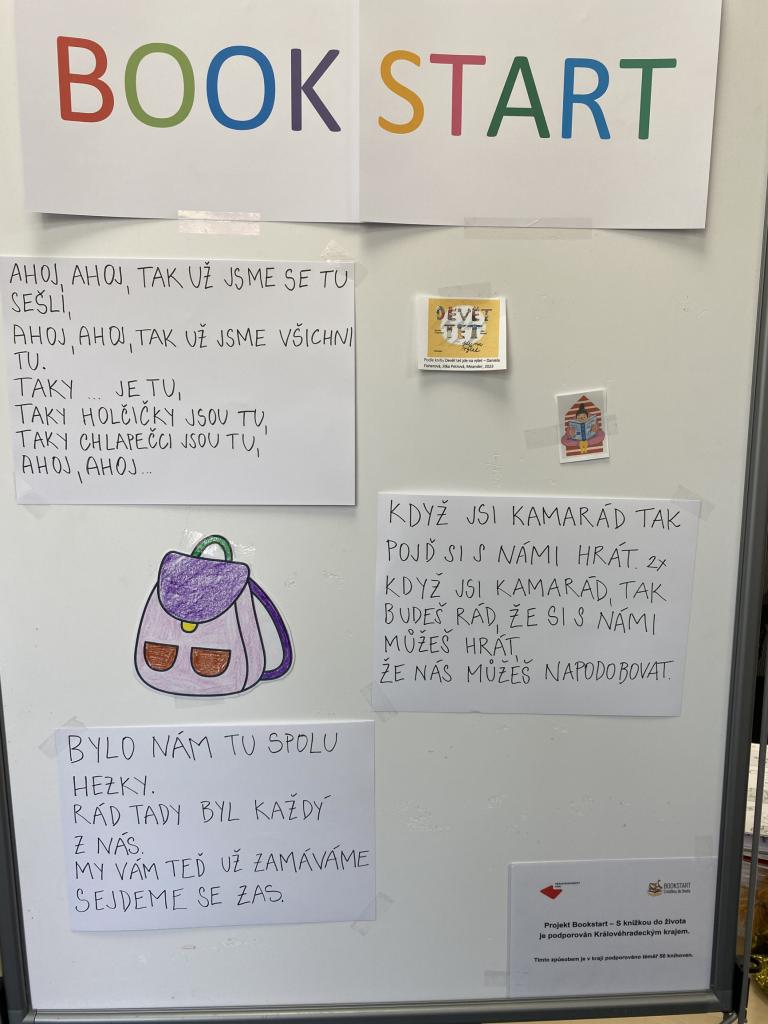 BOOK START
AHOJ, AHOJ, TAK UŽ JSME SE TU
SEŠLI,
AHOJ, AHOJ, TAK UŽ JSME VŠICHNI
TU.
TAKY ... JE TU,
TAKY HOLČIČKY JSOU TU,
TAKY CHLAPEČCI JSOU TU,
AHOJ, AHOJ...
DEVĚT
TET
jde na
výlet
Podle knihy Devět tet jde na výlet – Daniela
Fischerová, Jitka Petrová, Meander, 2023
KDYŽ JSI KAMARÁD TAK
POJĎ SI S NÁMI HRÁT. 2x
KDYŽ JSI KAMARÁD, TAK
BUDEŠ RÁD, ŽE SI S NÁMI
MŮŽEŠ HRÁT,
ŽE NÁS MŮŽEŠ NAPODOBOVAT.
BYLO NÁM TU SPOLU
HEZKY.
RÁD TADY BYL KAŽDÝ
Z NÁS.
MY VÁM TEĎ UŽ ZAMÁVÁME
SEJDEME SE ZAS.
BOOKSTART
S knížkou do života
Projekt Bookstart – S knížkou do života
je podporován Královéhradeckým krajem.
Tímto způsobem je v kraji podporováno téměř 50 knihoven.